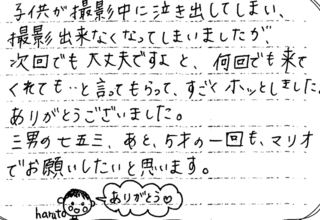 子供が撮影中に泣き出してしまい、
撮影出来なくなってしまいましたが、
次回でも大丈夫ですよと、何回でも来て
くれても‥と言ってもらって、すごくホッとしました。
ありがとうございました。
三男の七五三、あと、5才の一回も、マリオ
でお願いしたいと思います。
ありがとう♡
haruto